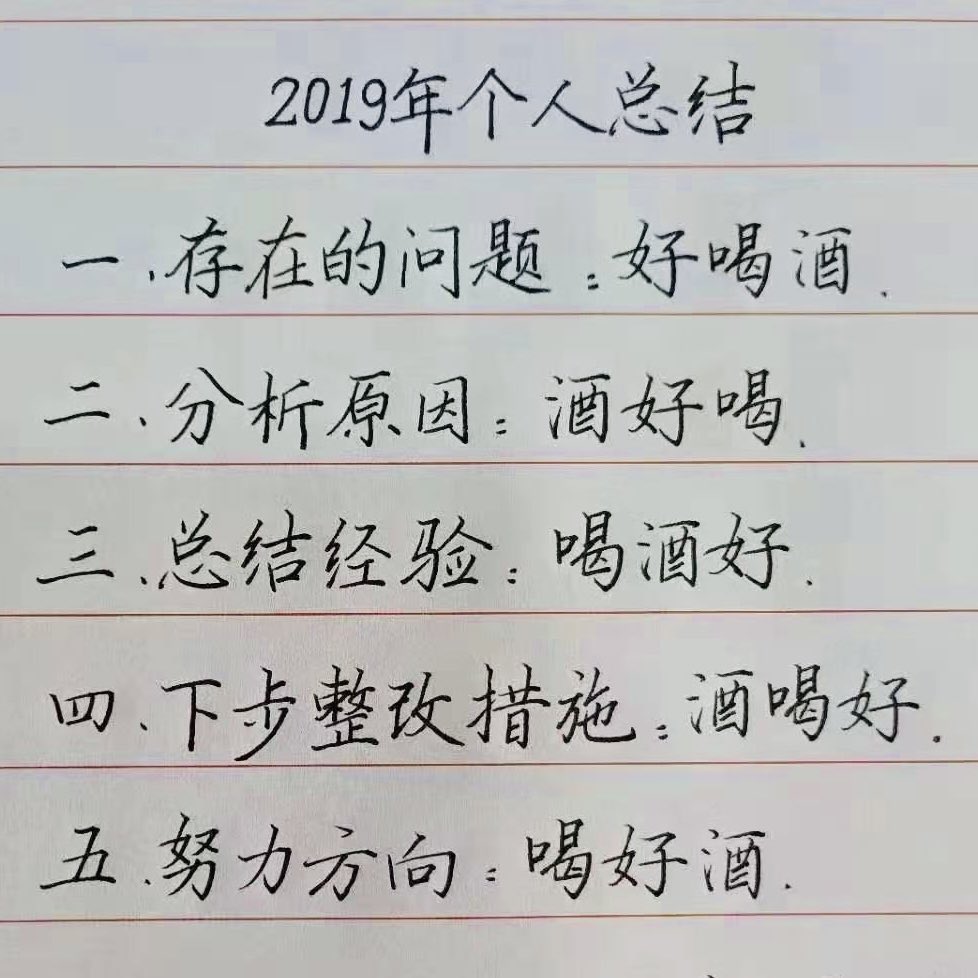 2019年个人总结
一、存在的问题：好喝酒.
二、分析原因：酒好喝.
三、总结经验：喝酒好.
四、下步整改措施：酒喝好.
五、努力方向：喝好酒.